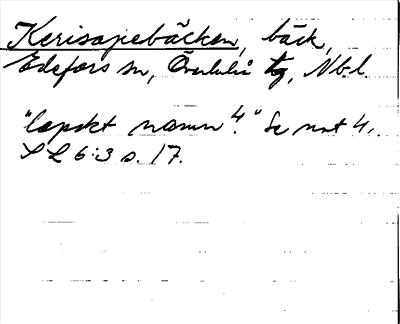 Kerisajebäcken, bäck,
Edefors sn, Överluleå tg, Nb.l.
"lapskt namn⁴." Se not 4,
SL 6:3 s. 17.